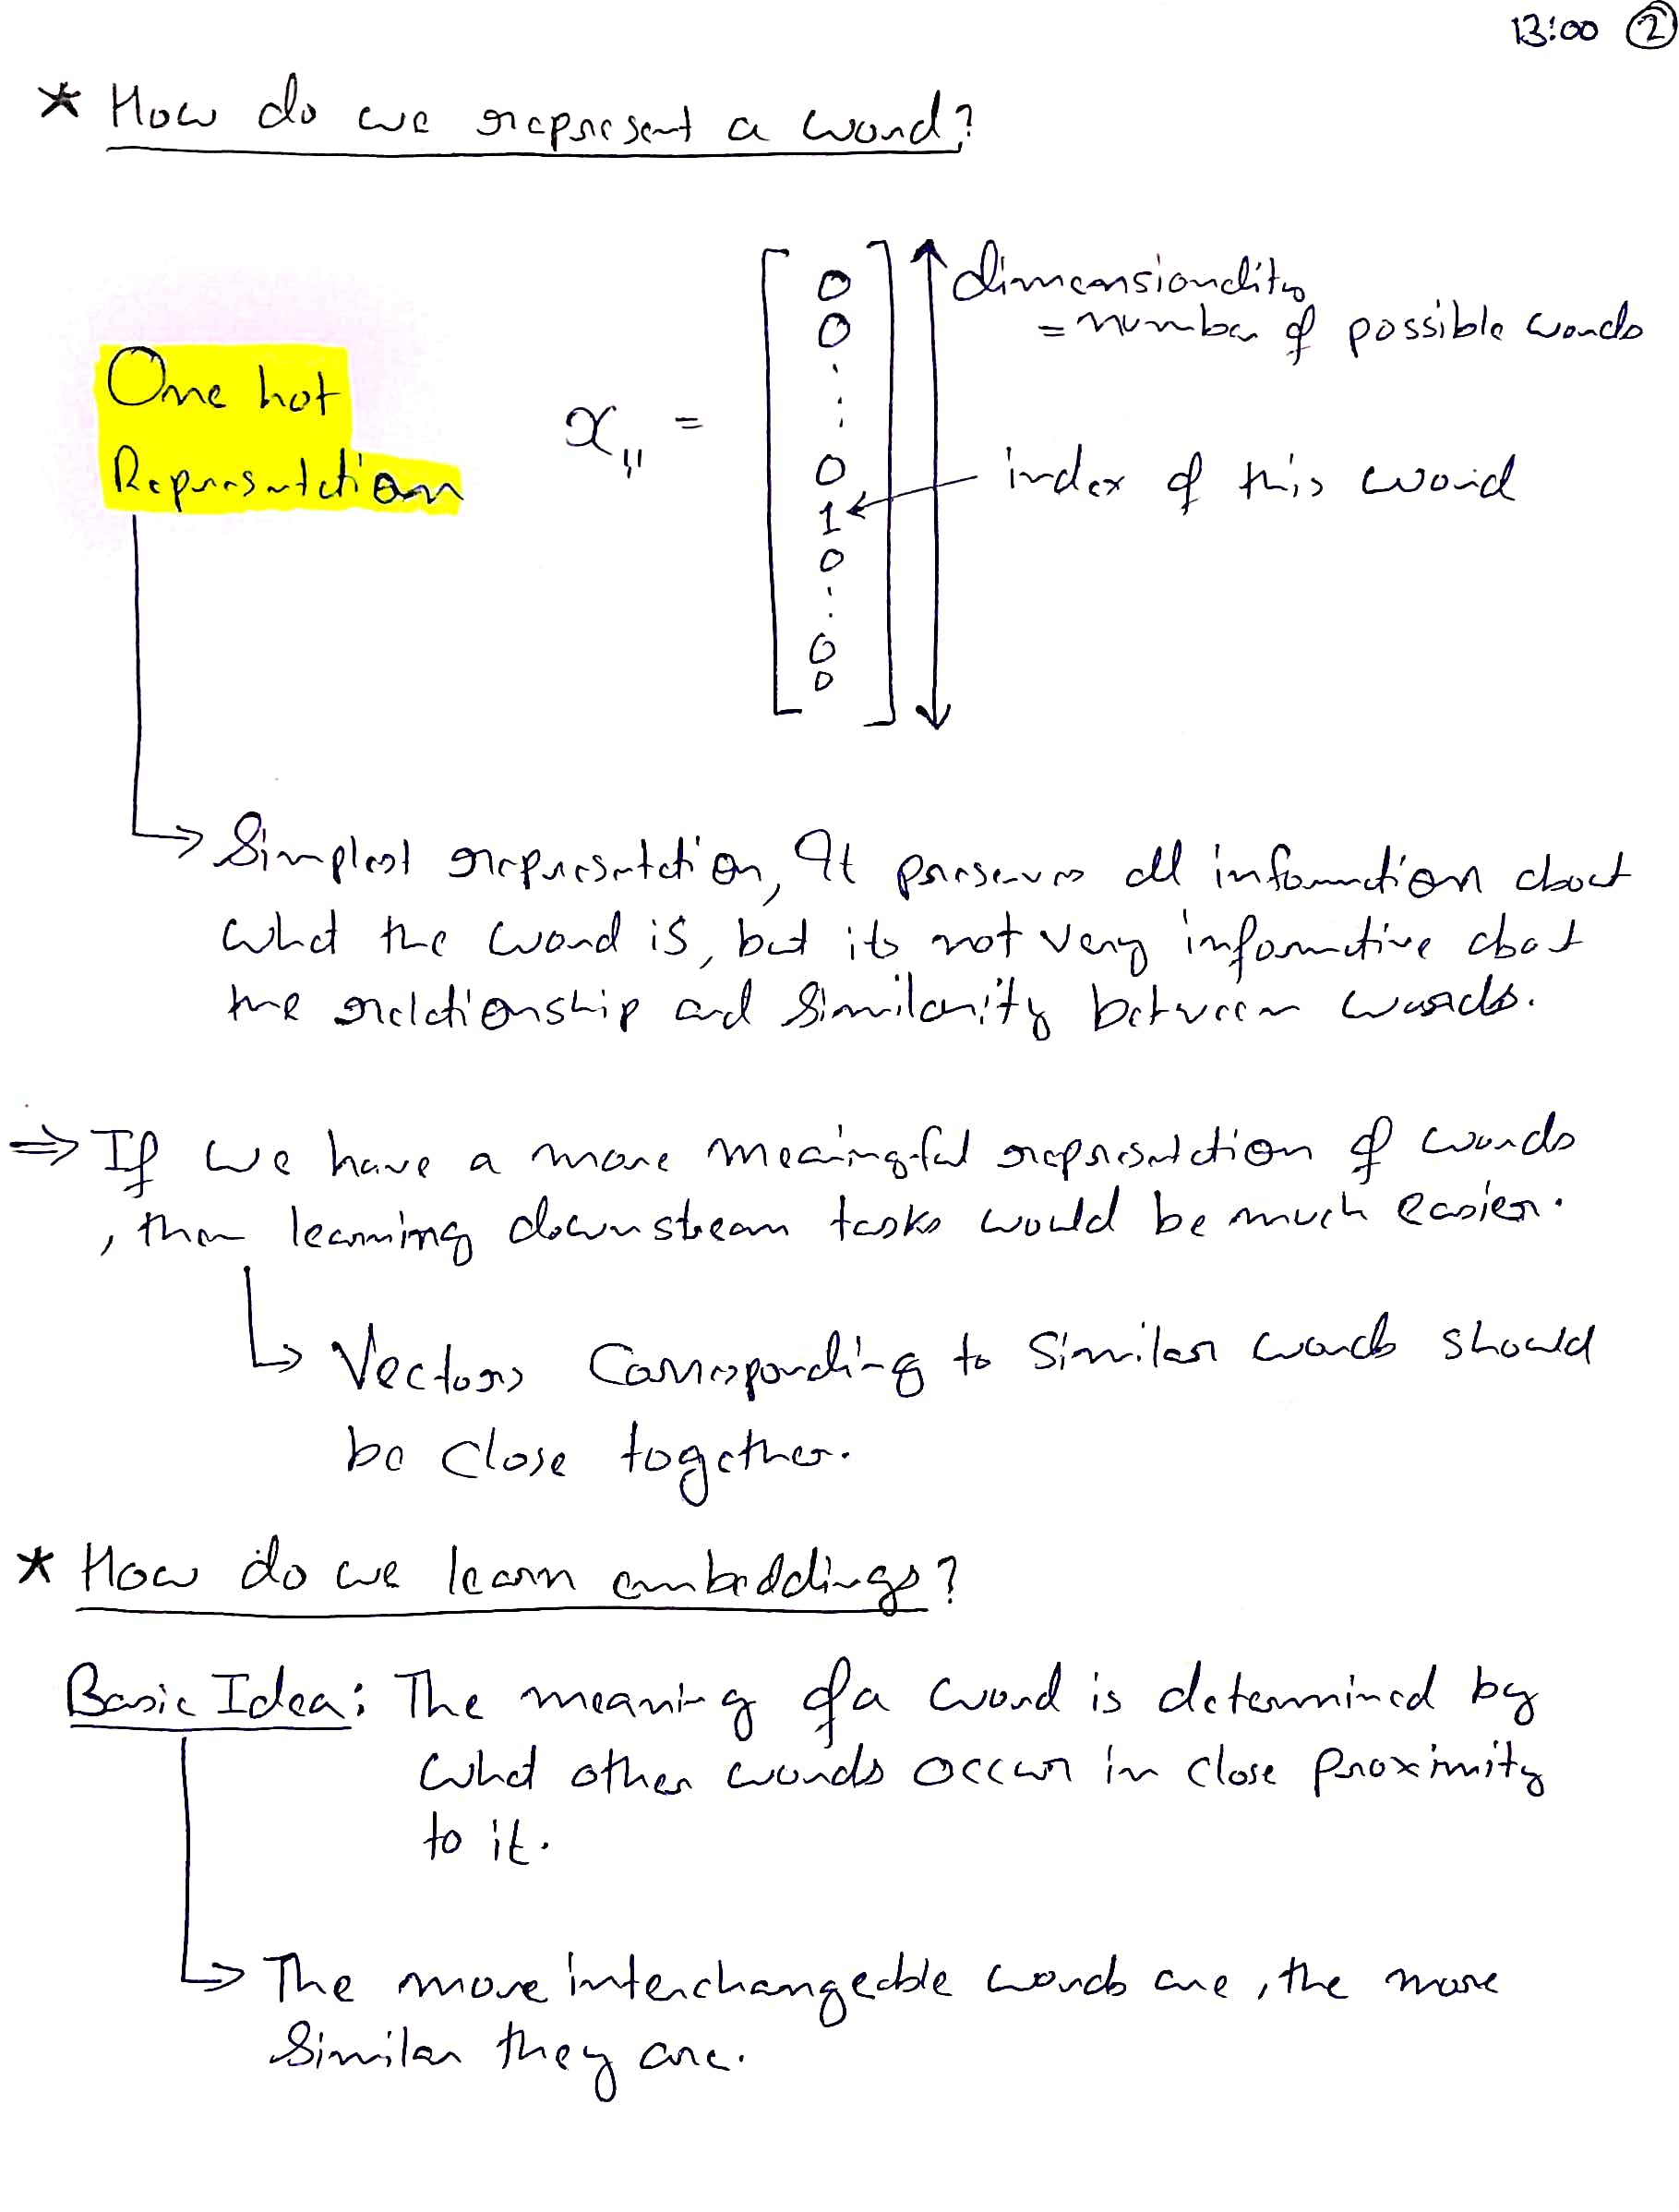 13:00 ②
* How do we represent a word?
One hot
Representation
x,, =
0
0
0
1
0
0
0
dimensionality
= number of possible words
index of this word
Simplest representation, It preserves all information about
what the word is, but its not very informative about
the relationship and Similarity between words.
⇒ If we have a more meaningful representation of words
, then learning downstream tasks would be much easier.
Vectors Corresponding to Similar words should
be close together.
* How do we learn embeddings?
Basic Idea: The meaning of a word is determined by
what other words occur in close proximity
to it.
The more interchangeable words are, the more
Similar they are.